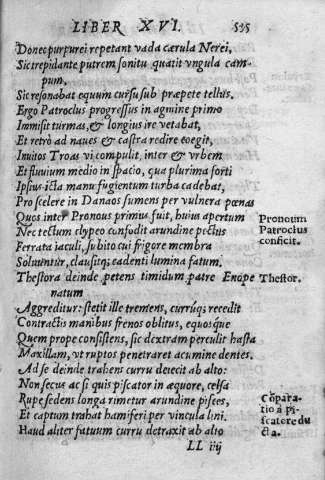 LIBER XVI. 535
Donec purpurei repetant vada cærula Nerei,
Sic trepidante putrem sonitu quatit vngula cam-
pum.
Sic resonabat equum cursu sub præpete tellus.
Ergo Patroclus progressus in agmine primo
Immisit turmas, & longius ire vetabat,
Et retrò ad naues & castra redire coegit,
Inuitos Troas vi compulit, inter & vrbem
Et fluuium medio in spacio, qua plurima sorti
Ipsius icta manu fugientum turba cadebat,
Pro scelere in Danaos sumens per vulnera pœnas
Quos inter Pronous primus fuit, huius apertum
Pronoum
Nec tectum clypeo confodit arundine pectus
Patroclus
Ferrata iaculi, subito cui frigore membra
conficit.
Soluuntur, clausitq; cadenti lumina fatum.
Thestora deinde petens timidum patre Enope
Thestor.
natum
Aggreditur: stetit ille tremens, currúq; recedit
Contractis manibus frenos oblitus, equosque
Quem prope consistens, sic dextram perculit hasta
Maxillam, vt ruptos penetraret acumine dentes.
Ad se deinde trahens curru deiecit ab alto:
Non secus ac si quis piscator in æquore, celsa
Rupe sedens longa rimetur arundine pisces,
Et captum trahat hamiferi per vincula lini.
Haud aliter fatuum curru detraxit ab alto
Cōpara-
tio à pi-
scatore du
cta.
LL iiij